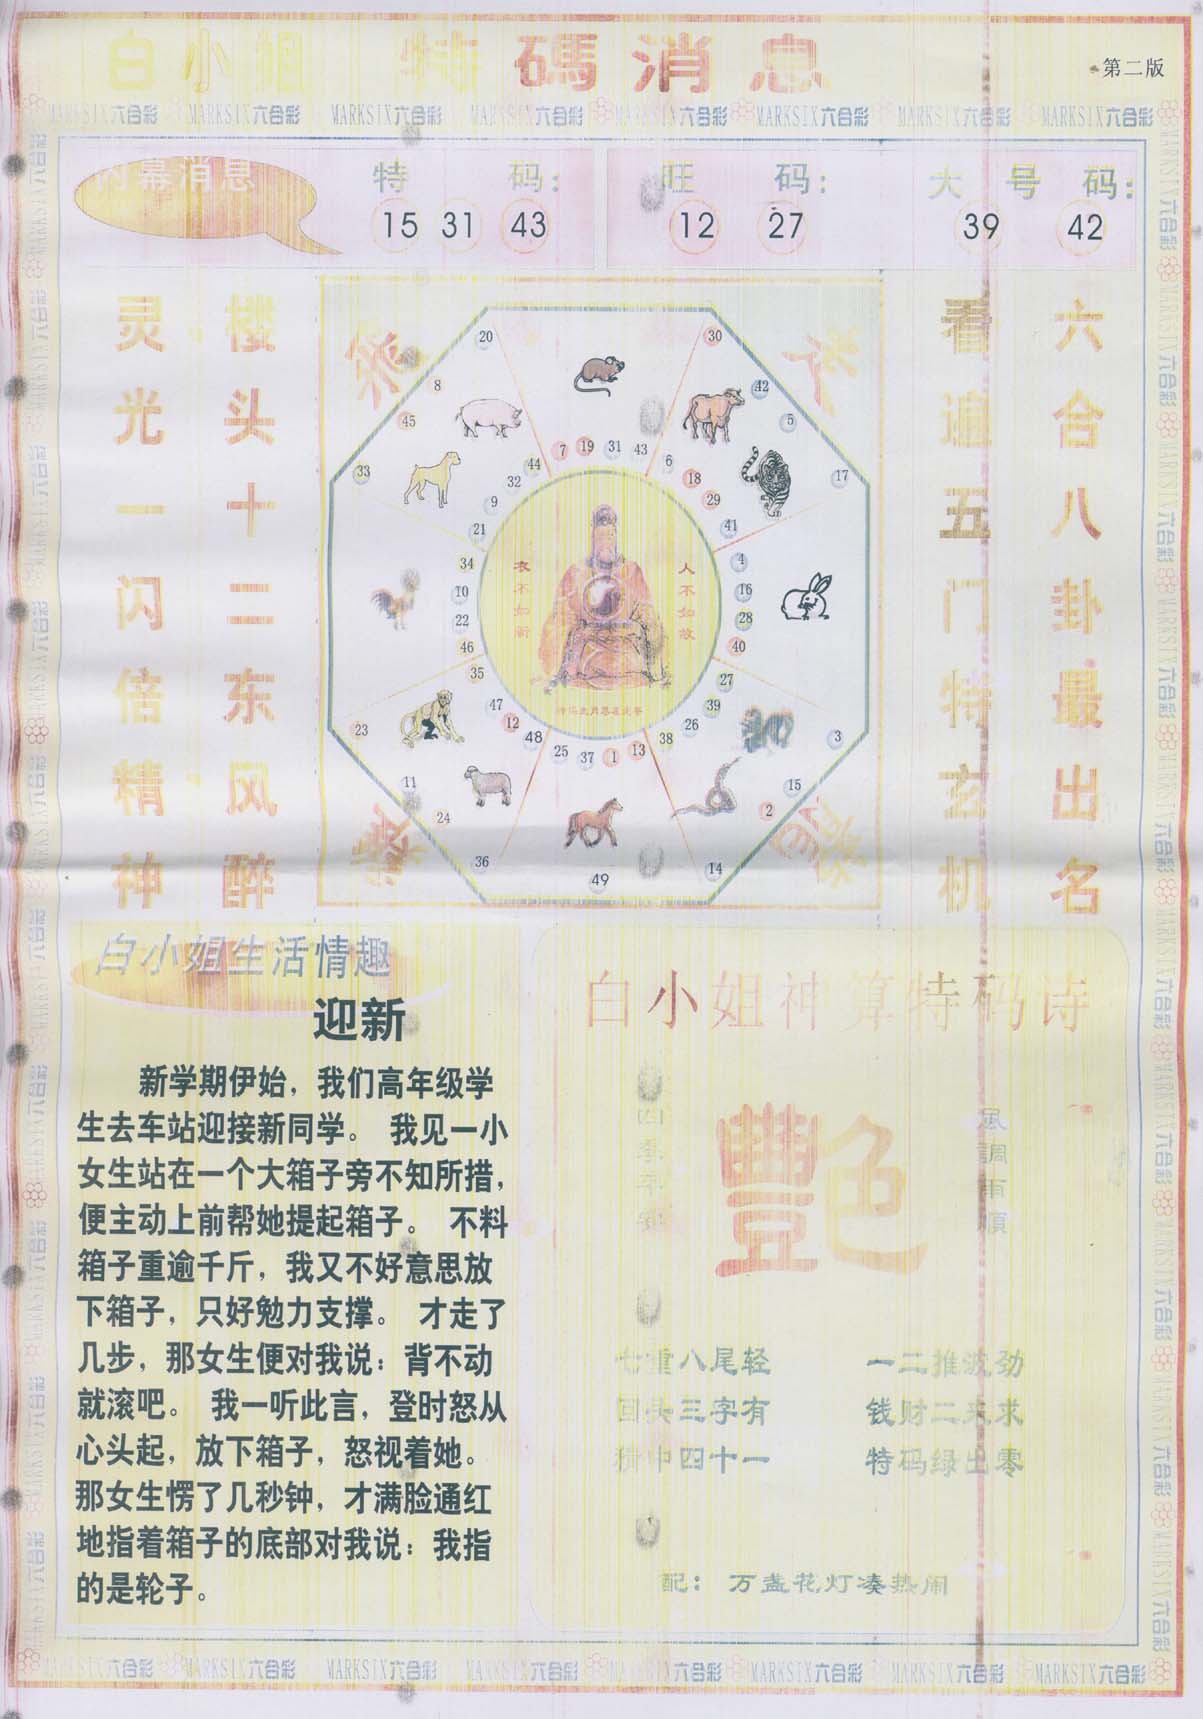 白小姐 特碼消息
第二版
MARKSIX六合彩 MARKSIX六合彩 MARKSIX六合彩 MARKSIX六合彩 MARKSIX六合彩 MARKSIX六合彩 MARKSIX六合彩 MARKSIX六合彩
内幕消息
特 码：
15 31 43
旺 码：
12 27
大 号 码：
39 42
六合八卦最出名
看遍五门特玄机
楼头十二东风醉
灵光一闪倍精神
20 30
8 42
45 5
33 17
7 19 31 43
44 6
32 18
9 29
21 41
34 4
10 16
22 28
46 40
35 27
47 39
12 26
48 38
25 37 1 13
23 3
11 15
24 2
36 14
49
人不如故
衣不如新
白小姐生活情趣
迎新
新学期伊始，我们高年级学
生去车站迎接新同学。 我见一小
女生站在一个大箱子旁不知所措，
便主动上前帮她提起箱子。 不料
箱子重逾千斤，我又不好意思放
下箱子，只好勉力支撑。 才走了
几步，那女生便对我说：背不动
就滚吧。 我一听此言，登时怒从
心头起，放下箱子，怒视着她。
那女生愣了几秒钟，才满脸通红
地指着箱子的底部对我说：我指
的是轮子。
白小姐神算特码诗
風調雨順
四季平安
豐色
七重八尾轻 一二推波劲
回头三字有 钱财二来求
猜中四十一 特码绿出零
配：万盏花灯凑热闹
MARKSIX六合彩 MARKSIX六合彩 MARKSIX六合彩 MARKSIX六合彩 MARKSIX六合彩 MARKSIX六合彩 MARKSIX六合彩 MARKSIX六合彩